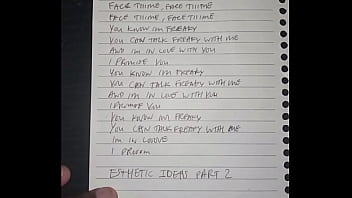 FACE TIIIME, FACE TIIIME
FACE TIIIME, FACE TIIIME
YOU KNOW IM FREAKY
YOU CAN TALK FREAKY WITH ME
AND IM IN LOVE WITH YOU
I PROMISE YOU
YOU KNOW IM FREAKY
YOU CAN TALK FREAKY WITH ME
AND IM IN LOVE WITH YOU
I PROMISE YOU
YOU KNOW IM FREAKY
YOU CAN TALK FREAKY WITH ME
IM IN LOOVE
I PROOM
ESTHETIC IDEAS PART 2